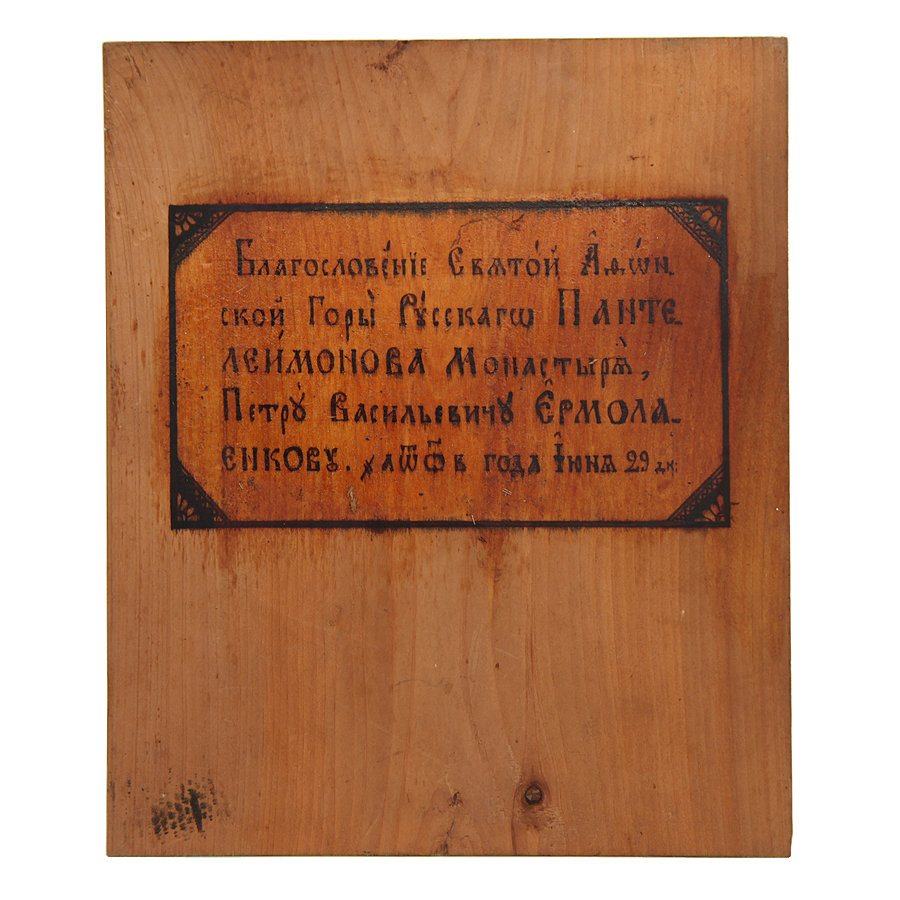 Благослове́нїе Свѧто́й А̂ѳѡ́н.
ской Горы̀ Рꙋ́сскагѡ Панте-
леи́монова Монастырѧ̀,
Петрꙋ̀ Васильевичꙋ Є̂рмола-
енковꙋ. года І҆юнѧ 29 дн: